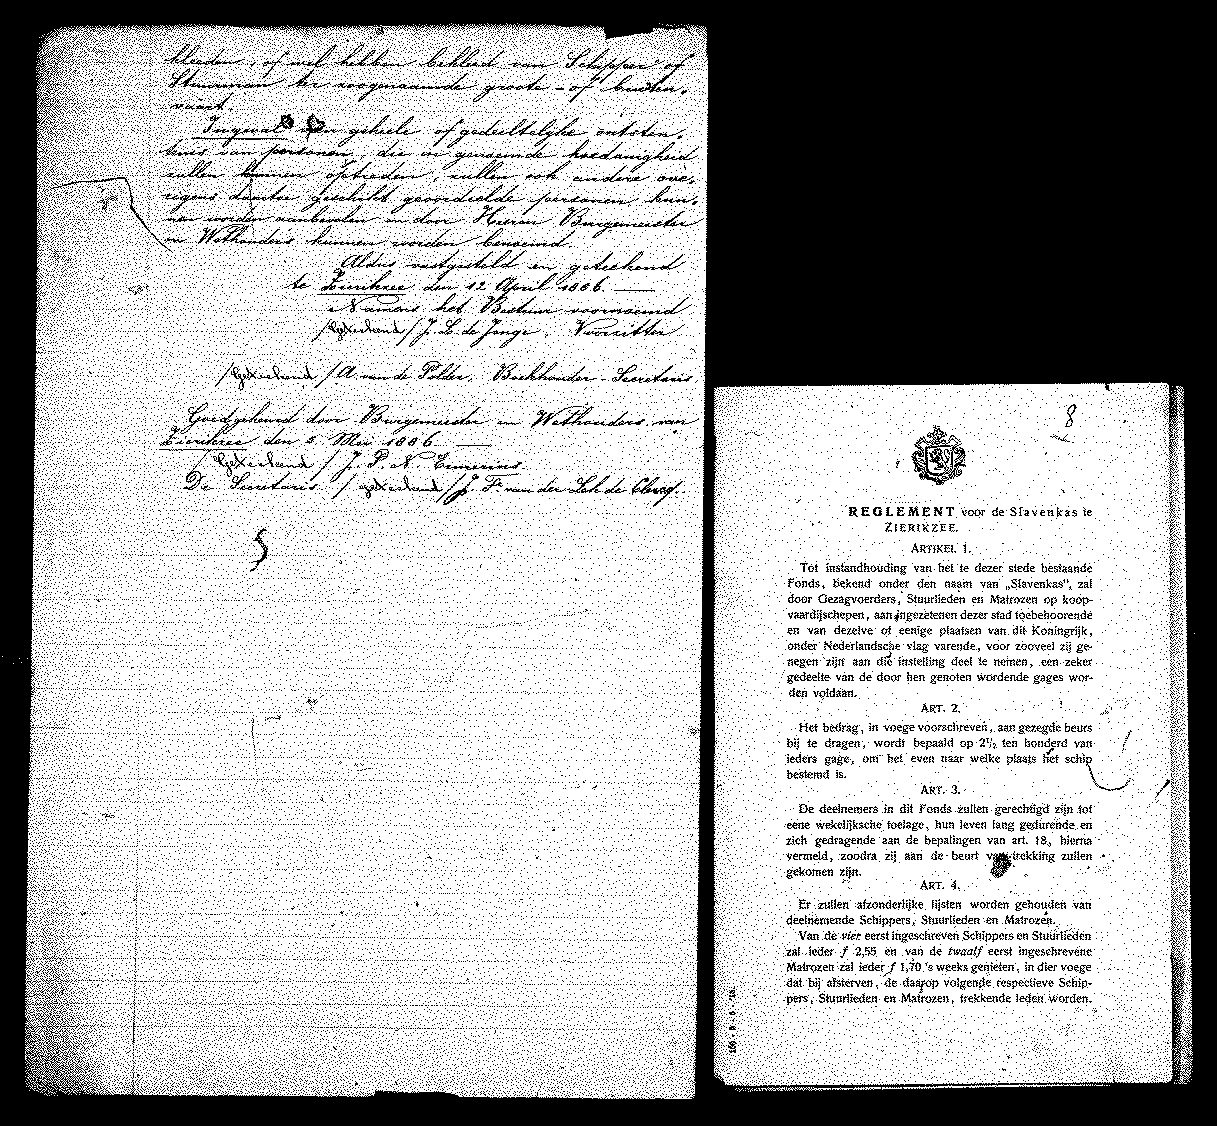 kleeden, of wel hebben bekleed van Schipper of
Stuurman ter zoogenaamde groote- of buiten-
vaart.
Ingeval van geheele of gedeeltelijke ontsten-
tenis van personen, die in genoemde hoedanigheid
zullen kunnen optreden, zullen ook andere ove-
rigens daartoe geschikt geoordeelde personen kun-
nen worden aanbevolen en door Heeren Burgemeester
en Wethouders kunnen worden benoemd.
Aldus vastgesteld en geteekend
te Zierikzee den 12 April 1886.
Namens het Bestuur voornoemd
/Geteekend/ J. L. de Jonge. Voorzitter
/Geteekend/ A. van de Polder, Boekhouder-Secretaris
Goedgekeurd door Burgemeester en Wethouders van
Zierikzee den 5 Mei 1886
/Geteekend/ J. P. N. Ermerins
De Secretaris /geteekend/ J. F. van der Lek de Clercq.
5
8
REGLEMENT voor de Slavenkas te
ZIERIKZEE.
ARTIKEL 1.
Tot instandhouding van het te dezer stede bestaande
Fonds, bekend onder den naam van „Slavenkas", zal
door Gezagvoerders, Stuurlieden en Matrozen op koop-
vaardijschepen, aan ingezetenen dezer stad toebehoorende
en van dezelve of eenige plaatsen van dit Koningrijk,
onder Nederlandsche vlag varende, voor zooveel zij ge-
negen zijn aan die instelling deel te nemen, een zeker
gedeelte van de door hen genoten wordende gages wor-
den voldaan.
ART. 2.
Het bedrag, in voege voorschreven, aan gezegde beurs
bij te dragen, wordt bepaald op 2½ ten honderd van
ieders gage, om het even naar welke plaats het schip
bestemd is.
ART. 3.
De deelnemers in dit Fonds zullen gerechtigd zijn tot
eene wekelijksche toelage, hun leven lang gedurende en
zich gedragende aan de bepalingen van art. 18, hierna
vermeld, zoodra zij aan de beurt van trekking zullen
gekomen zijn.
ART. 4.
Er zullen afzonderlijke lijsten worden gehouden van
deelnemende Schippers, Stuurlieden en Matrozen.
Van de vier eerst ingeschreven Schippers en Stuurlieden
zal ieder f 2,55 en van de twaalf eerst ingeschrevene
Matrozen zal ieder f 1,70 's weeks genieten, in dier voege
dat bij afsterven, de daarop volgende respectieve Schip-
pers, Stuurlieden en Matrozen, trekkende leden worden.